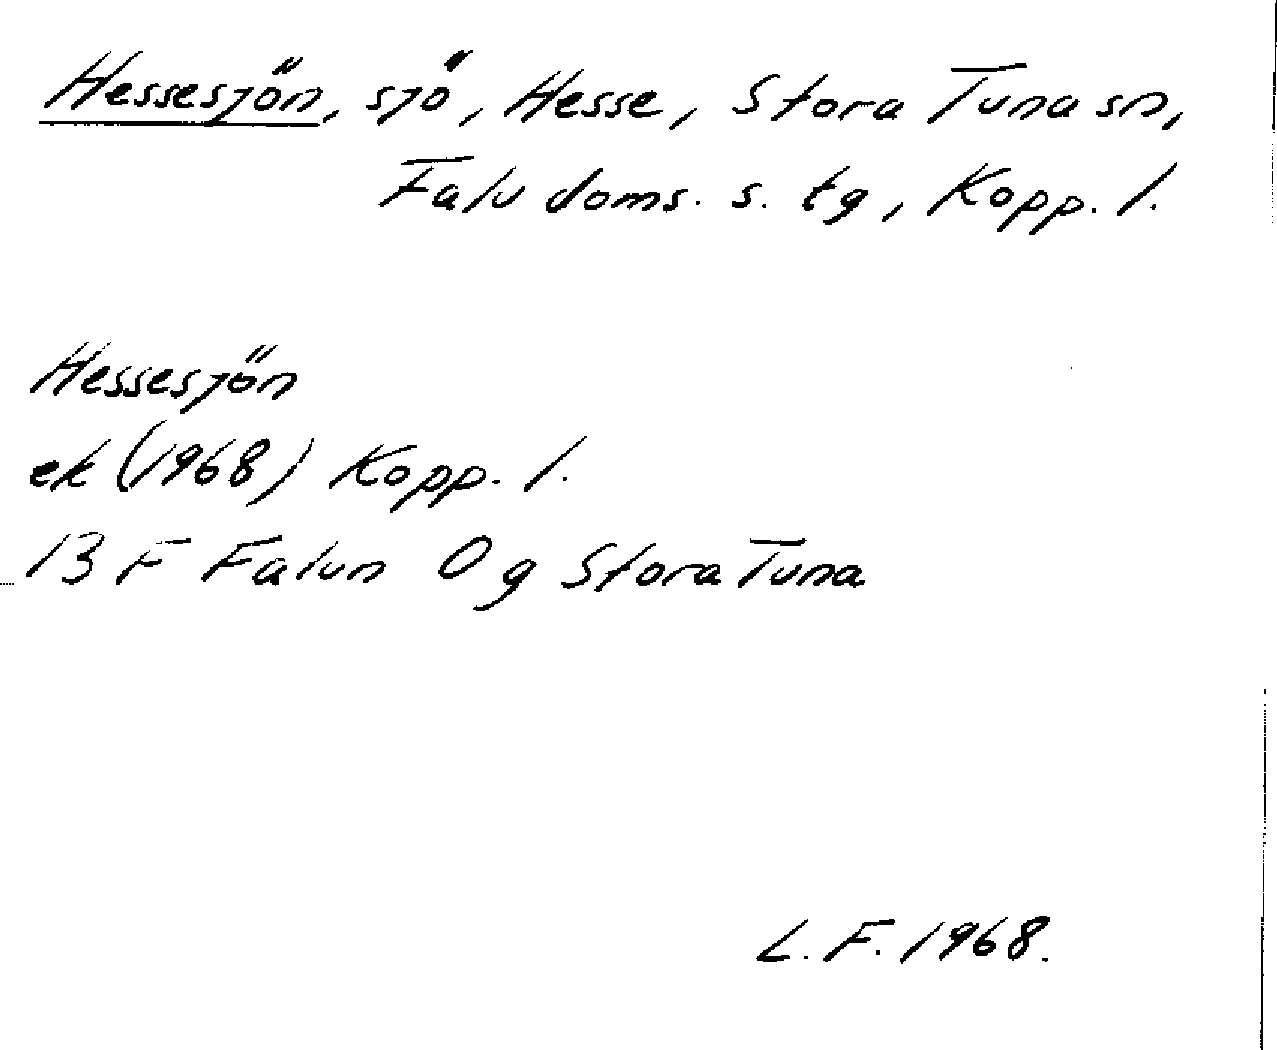 Hessesjön, sjö, Hesse, Stora Tuna sn,
Falu doms. s. tg, Kopp. l.
Hessesjön
ek (1968) Kopp. l.
13 F Falun 0 g Stora Tuna
L. F. 1968.